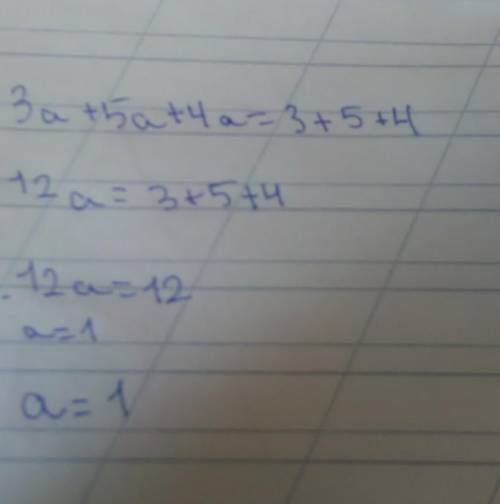 3a+5a+4a=3+5+4
12a=3+5+4
.12a=12
a=1
a=1